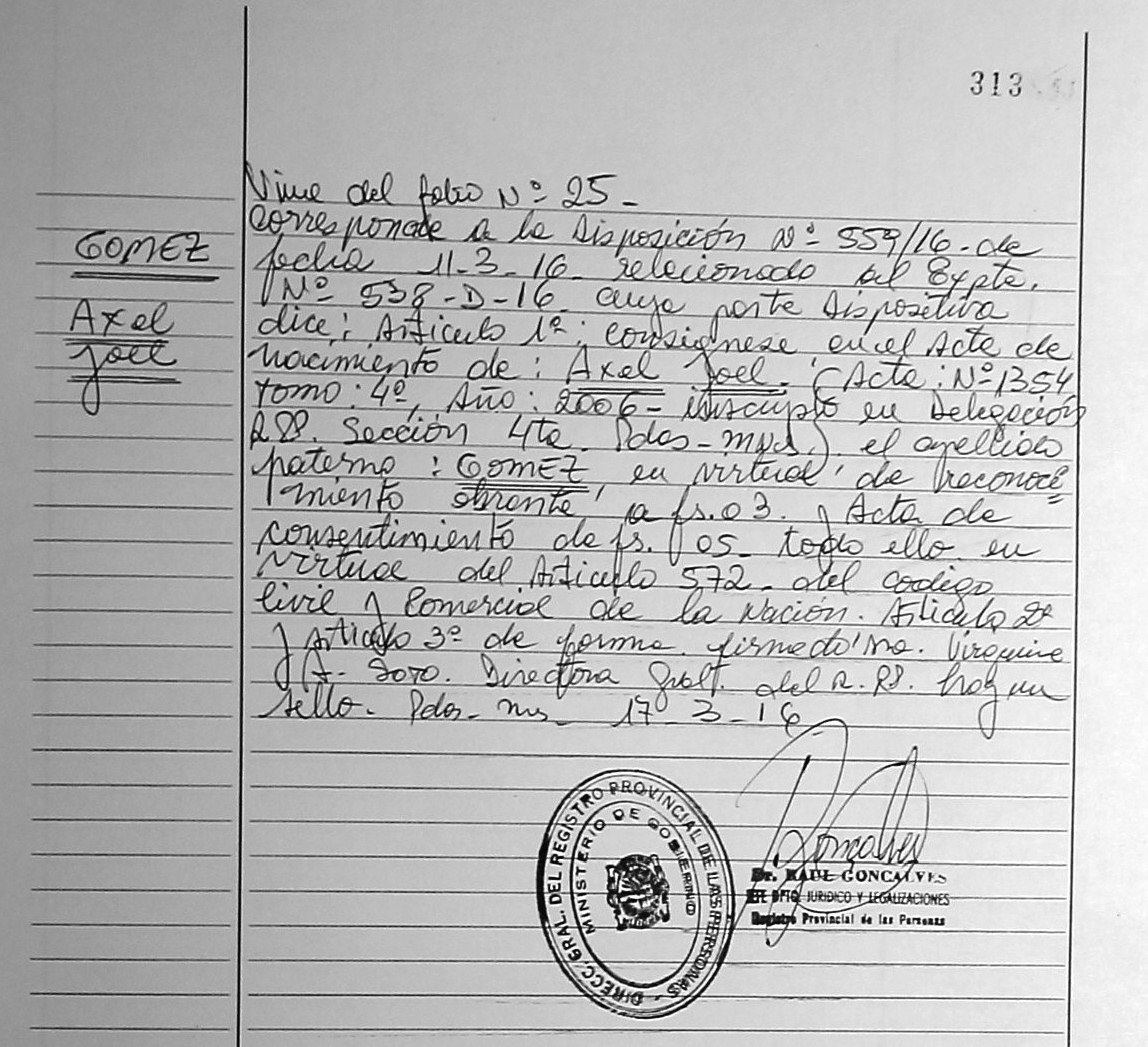 313
Viene del folio Nº 25 -
Corresponde a la Disposición Nº 559/16 - de
GOMEZ
fecha 11-3-16 - relacionado al Expte.
Nº 538-D-16 cuya parte Dispositiva
Axel
Joel
dice: Artículo 1º: consignese en el Acta de
nacimiento de: Axel Joel - (Acta: Nº 1354
tomo: 4º, Año: 2006 - inscripto en Delegación
R.P. Sección 4ta Pdas - mns.) el apellido
paterno: GOMEZ en virtud de reconoci
miento obrante a fs. 03. y Acta de
consentimiento de fs. 05 - todo ello en
virtud del Artículo 572 - del codigo
Civil y Comercial de la Nación. Artículo 2º
y Artículo 3º de forma. firmado: Dra.
A. Soto. Directora Gral. del R.P. hay un
sello. Pdas - mns - 17-3-16
DIRECC. GRAL. DEL REGISTRO PROVINCIAL DE LAS PERSONAS
MINISTERIO DE GOBIERNO
Dr. RAUL GONCALVES
JEFE DPTO. JURIDICO Y LEGALIZACIONES
Registro Provincial de las Personas